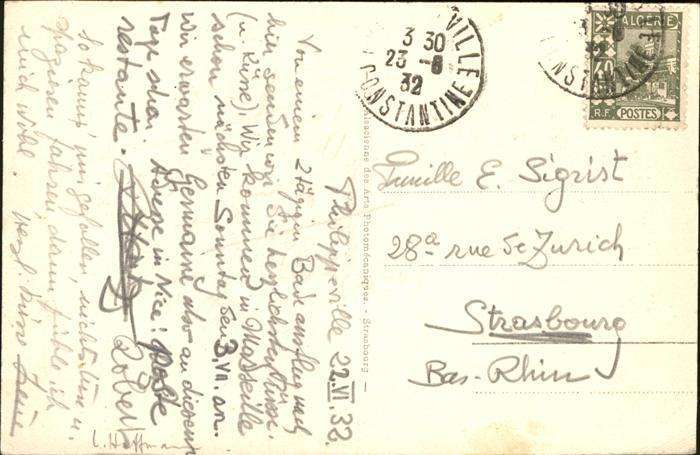 Philippeville 22.VI.32.
Von einem 2 tägigen Badausflug nach
hier senden wir Sie herzlichsten Grüsse.
(u. Küsse). Wir kommen in Marseille
schon nächsten Sonntag den 3.VII. an.
wir erwarten Germaine also an diesem
Tage schon. Adresse in Nice: poste
restante.
Robert
So kamp mir gefallen, nichtstun u.
spazieren fahren dann fühle ich
mich wohl. Herzl. Küsse
L. Hoffmann
3 30
23 -6
32
VILLE
CONSTANTINE
3
32
CONSTANTINE
ALGERIE
40
R.F. POSTES
Alsacienne des Arts Photomécaniques. - Strasbourg
Famille E. Sigrist
28a rue de Zurich
Strasbourg
Bas-Rhin